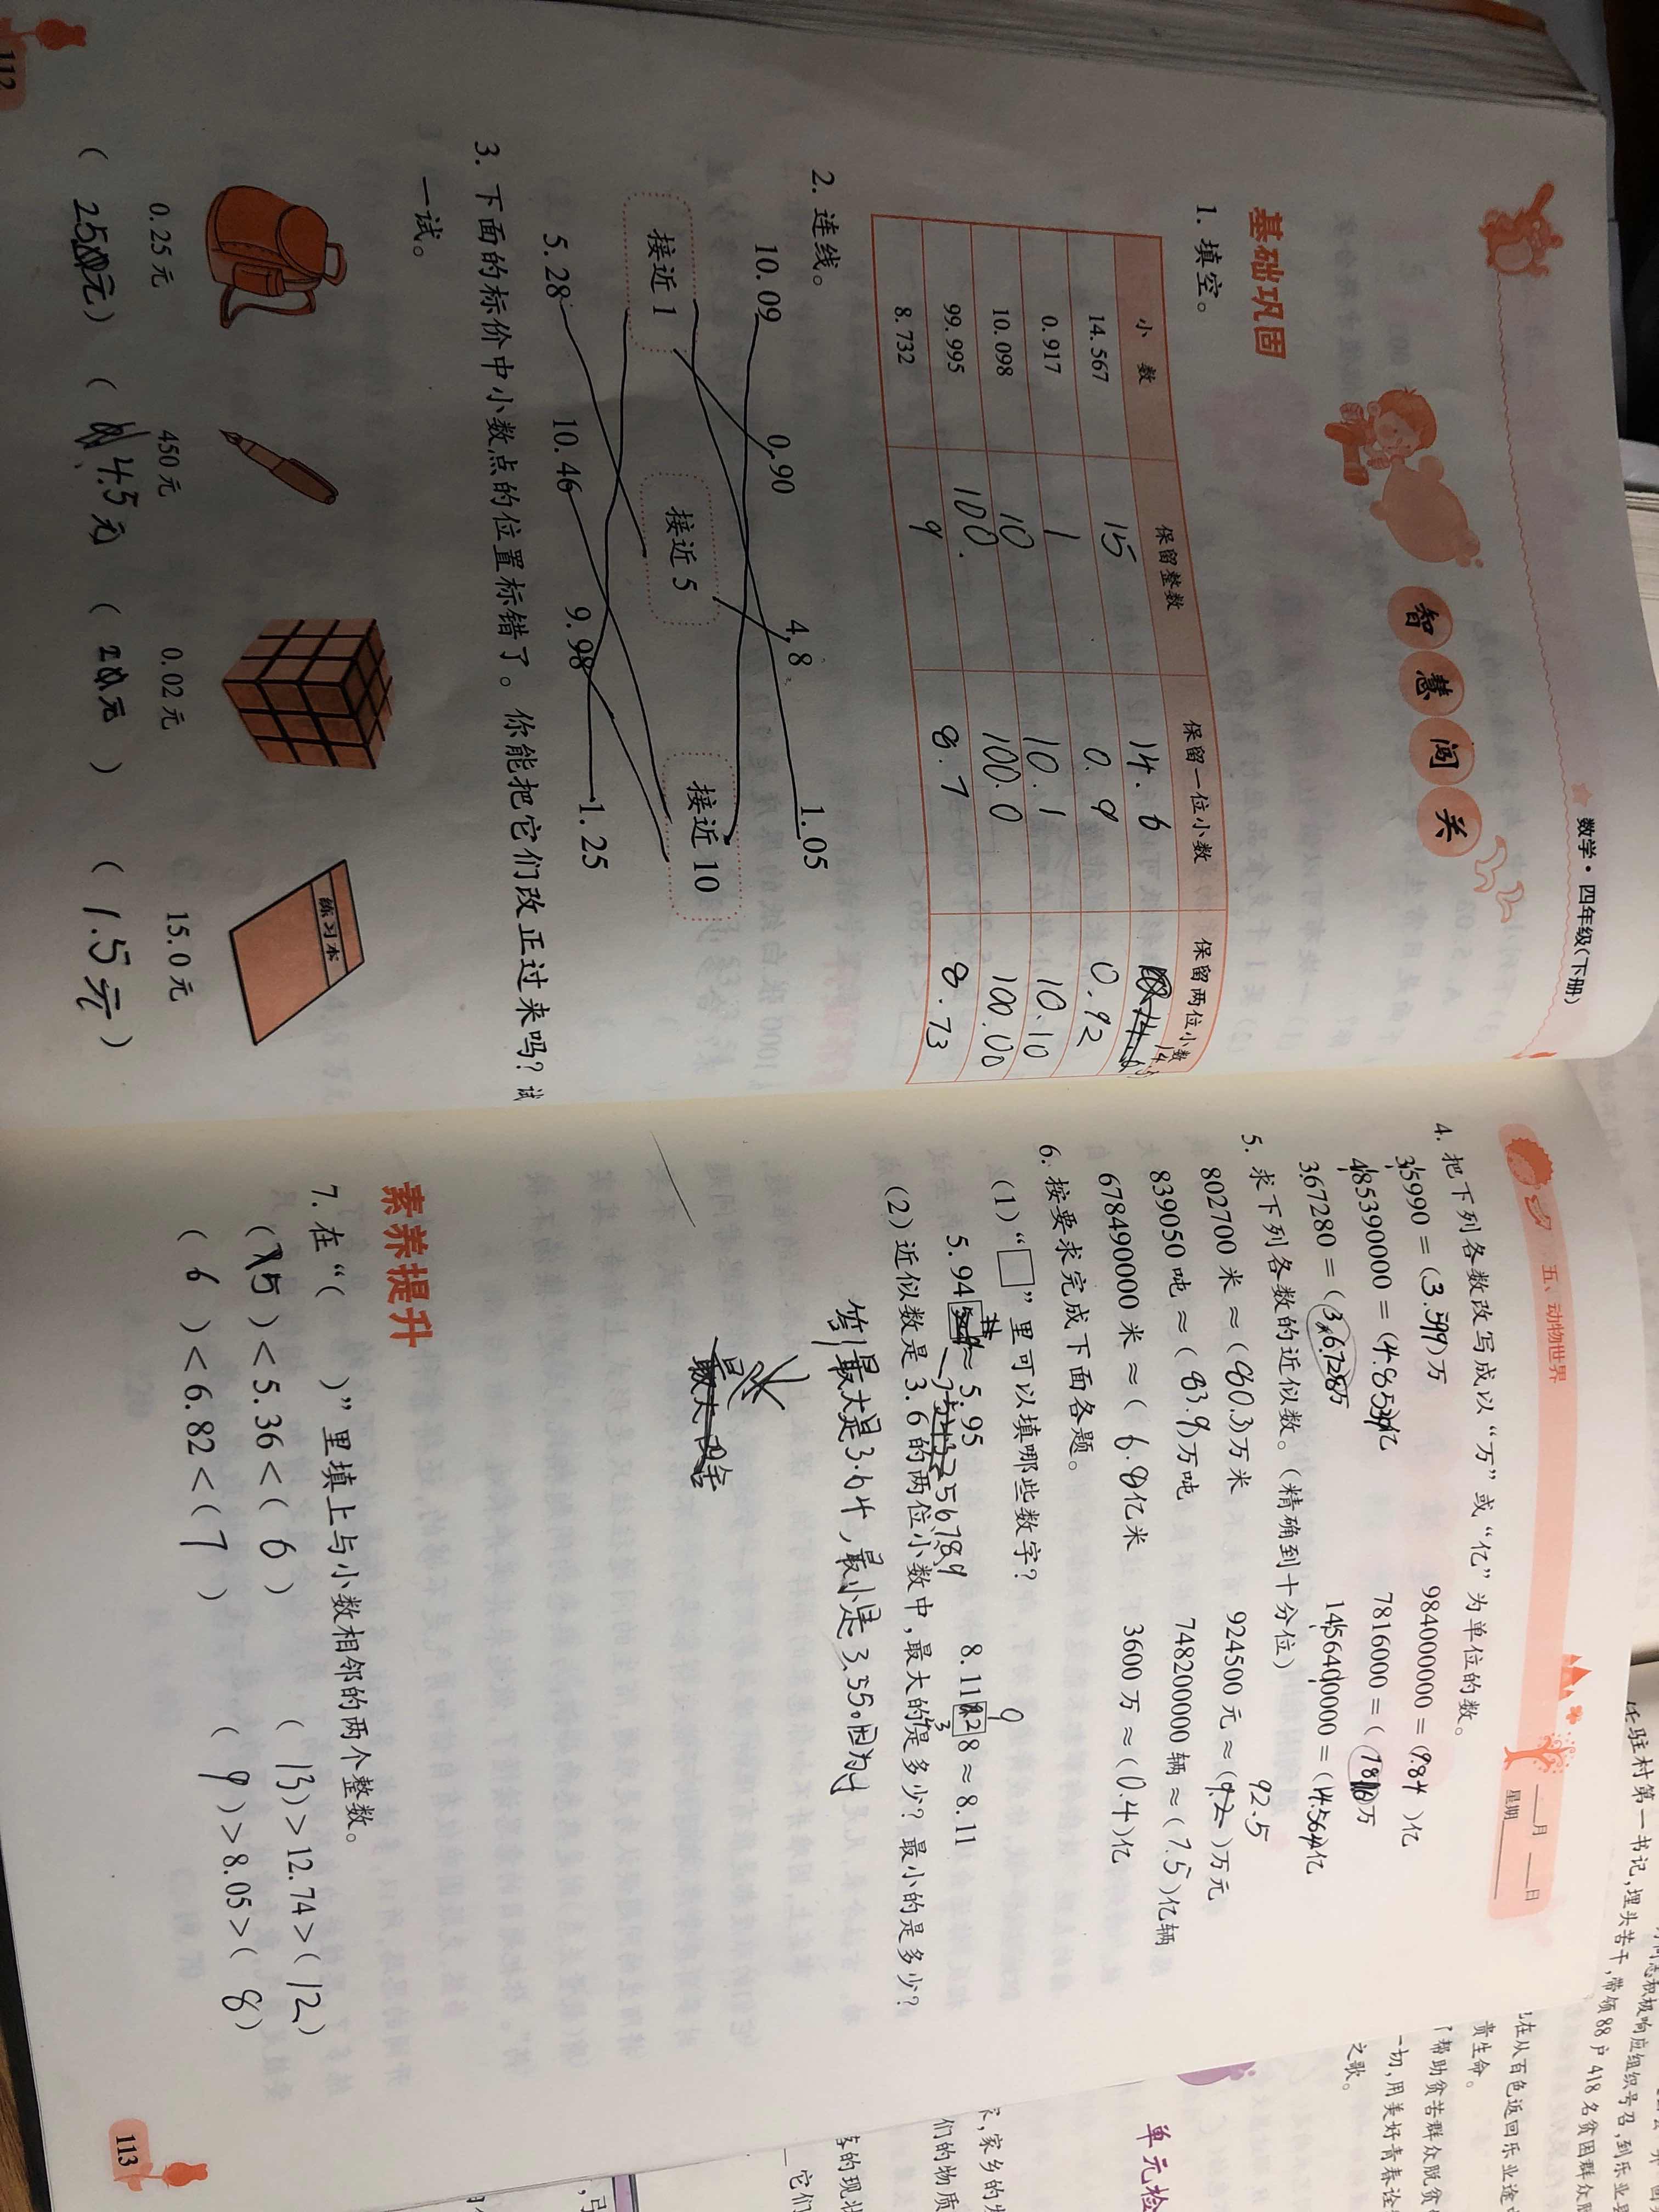 数学·四年级(下册)
智慧闯关
基础巩固
1. 填空。
小 数 保留整数 保留一位小数 保留两位小数
14.567 15 14.6
0.917 1 0.9 0.92
10.098 10 10.1 10.10
99.995 100 100.0 100.00
8.732 9 8.7 8.73
2. 连线。
10.09 0.90 4.8 1.05
接近 1 接近 5 接近 10
5.28 10.46 9.98 1.25
3. 下面的标价中小数点的位置标错了。你能把它们改正过来吗？试
一试。
练习本
0.25 元 450 元 0.02 元 15.0 元
( 25元) ( 4.5元 ( 2元 ) ( 1.5元 )
112
五、动物世界
月 日
星期
4. 把下列各数改写成以“万”或“亿”为单位的数。
35990 = (3.599)万 984000000 = (9.84 )亿
485390000 = (4.8539)亿 7816000 = ( )万
367280 = ( 万 1456400000 = (14.564)亿
5. 求下列各数的近似数。(精确到十分位)
802700 米 ≈ (80.3)万米 924500 元 ≈ ( )万元
92.5
839050 吨 ≈ ( 83.9)万吨 748200000 辆 ≈ ( 7.5 )亿辆
678490000 米 ≈ ( 6.8)亿米 3600 万 ≈ (0.4)亿
6. 按要求完成下面各题。
(1) “□”里可以填哪些数字？
5.94□ ≈ 5.95 8.11□8 ≈ 8.11
56789
(2) 近似数是 3.6 的两位小数中,最大的是多少？最小的是多少？
答:最大是3.64,最小是3.55。因为
素养提升
7. 在“( )”里填上与小数相邻的两个整数。
( 5 ) < 5.36 < ( 6 ) ( 13) > 12.74 > ( 12)
( 6 ) < 6.82 < ( 7 ) ( 9 ) > 8.05 > ( 8)
113
驻村第一书记,埋头苦干,带领 88 户 418 名贫困群众
贵生命。
一切,用美好青春诠
之歌。
单元检